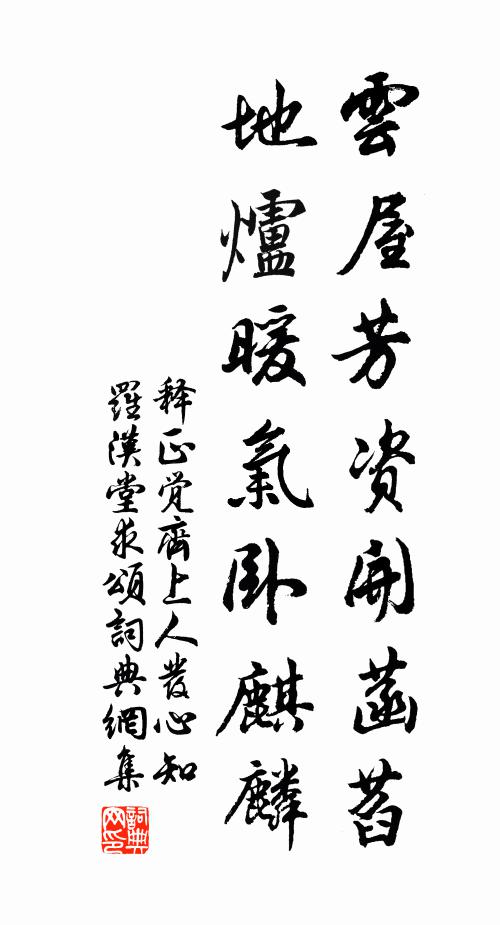 雲屋芳資開菡萏
地爐暖氣臥麒麟
释正覺齊上人發心知
羅漢堂求頌詞典網集
詞典
网印